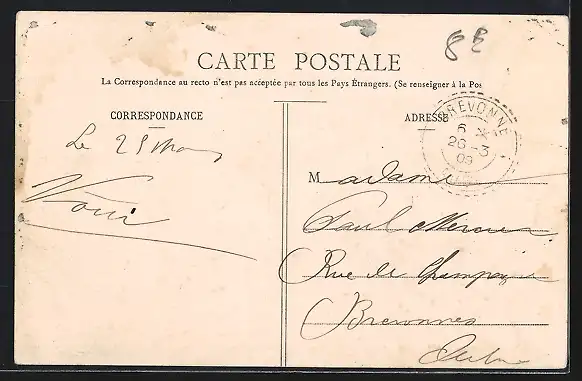 8E
CARTE POSTALE
La Correspondance au recto n'est pas acceptée par tous les Pays Étrangers. (Se renseigner à la Pos
CORRESPONDANCE
ADRESSE
BRÉVONNE
6
26-3
09
Le 25 Mars
Madame
Paul Mercier
Rue de Champagne
Brevonnes
Aube